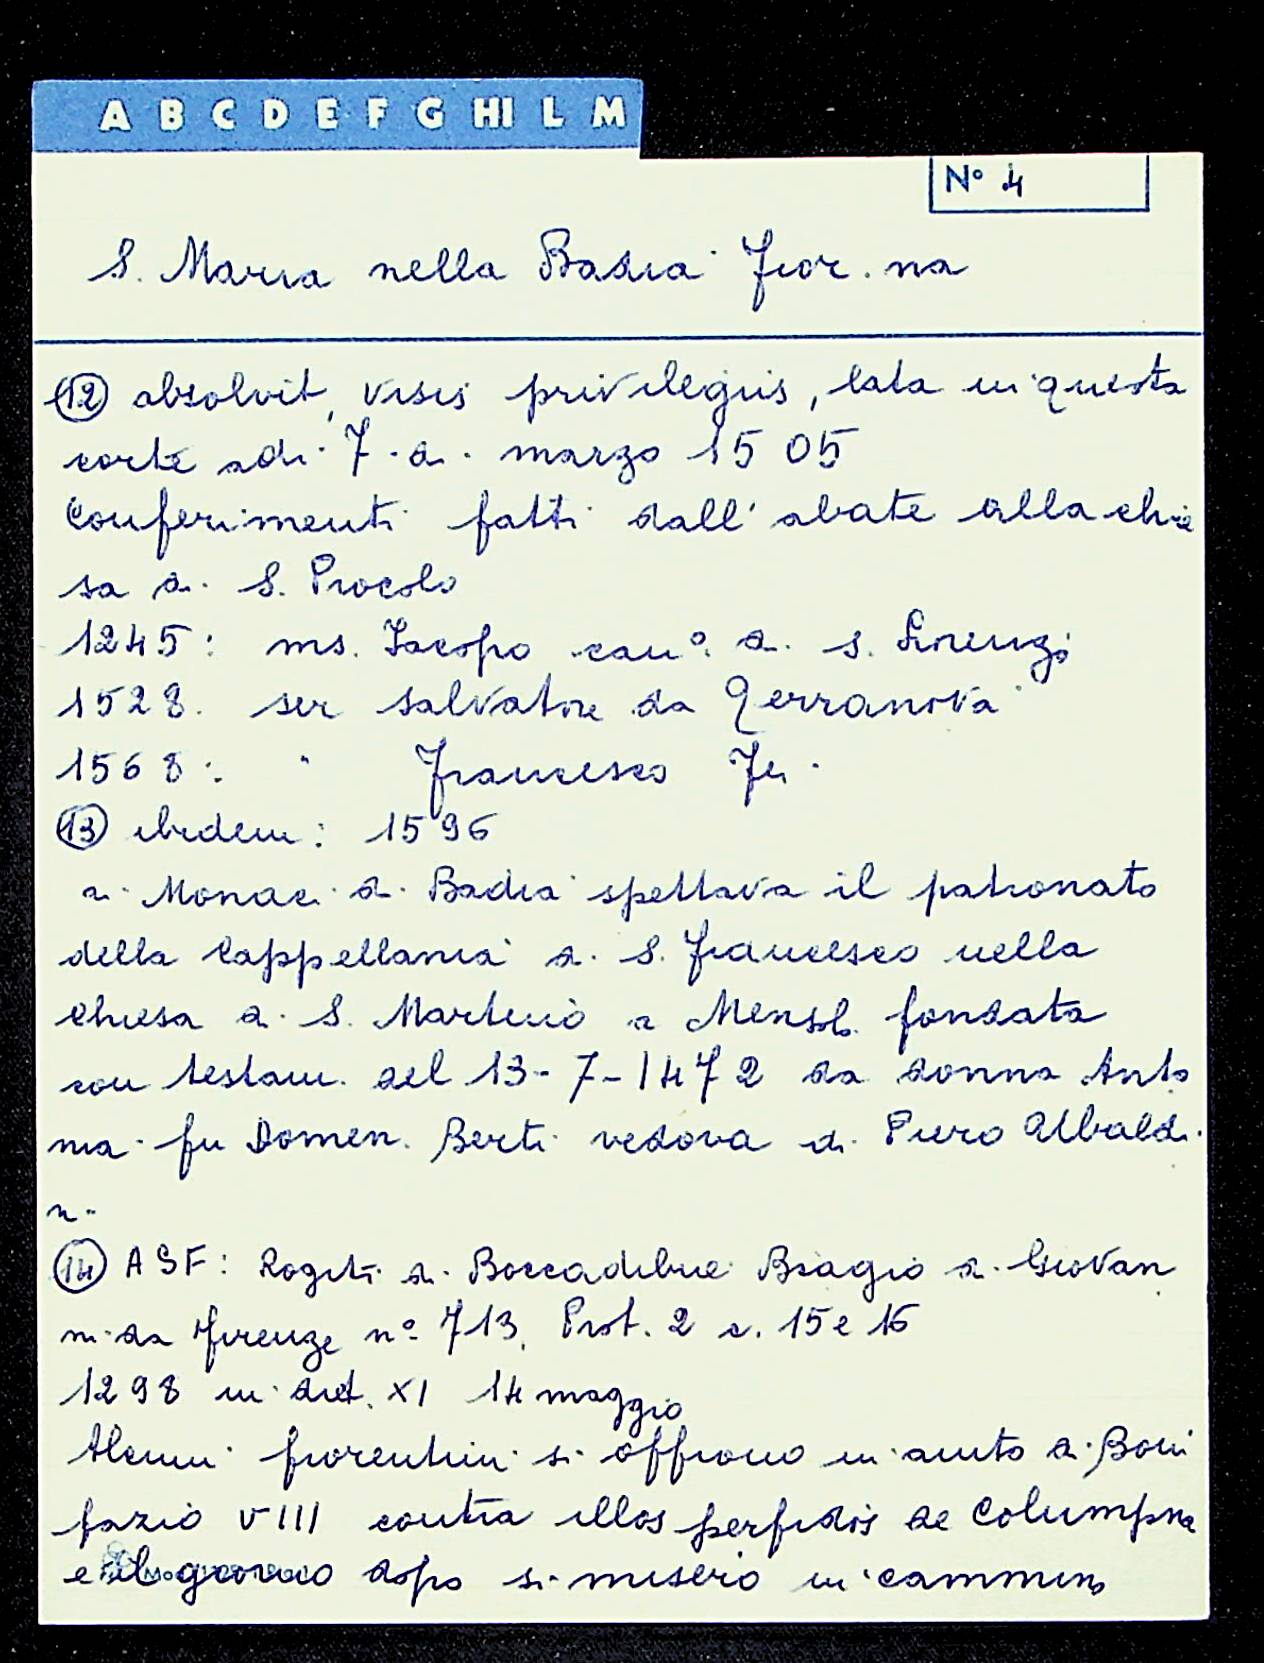 A B C D E F G HI L M
N° 4
S. Maria nella Badia Fior.na
(12) absolvit, visis privilegiis, lata in questa
corte adi 7 di marzo 1505
Conferimenti fatti dall'abate alla chie
sa di S. Procolo
1245: ms. Iacopo can° di S. Lorenzo
1528. ser Salvatore da Terranova
1568: " Francesco
(13) ibidem: 1596
ai Monaci di Badia spettava il patronato
della Cappellania di S. Francesco nella
chiesa di S. Martino a Mensol. fondata
con testam. del 13-7-1472 da donna Anto
nia fu Domen. Berti vedova di Piero Ubaldi
ni
(14) ASF: Rogiti di Boccadibue Biagio di Giovan
ni da Firenze n° 713. Prot. 2 c. 15 e 16
1298 indict. XI 14 maggio
Alcuni fiorentini si offrono in aiuto di Boni
fazio VIII contra illos perfidos de Columpna
e il giorno dopo si misero in cammino